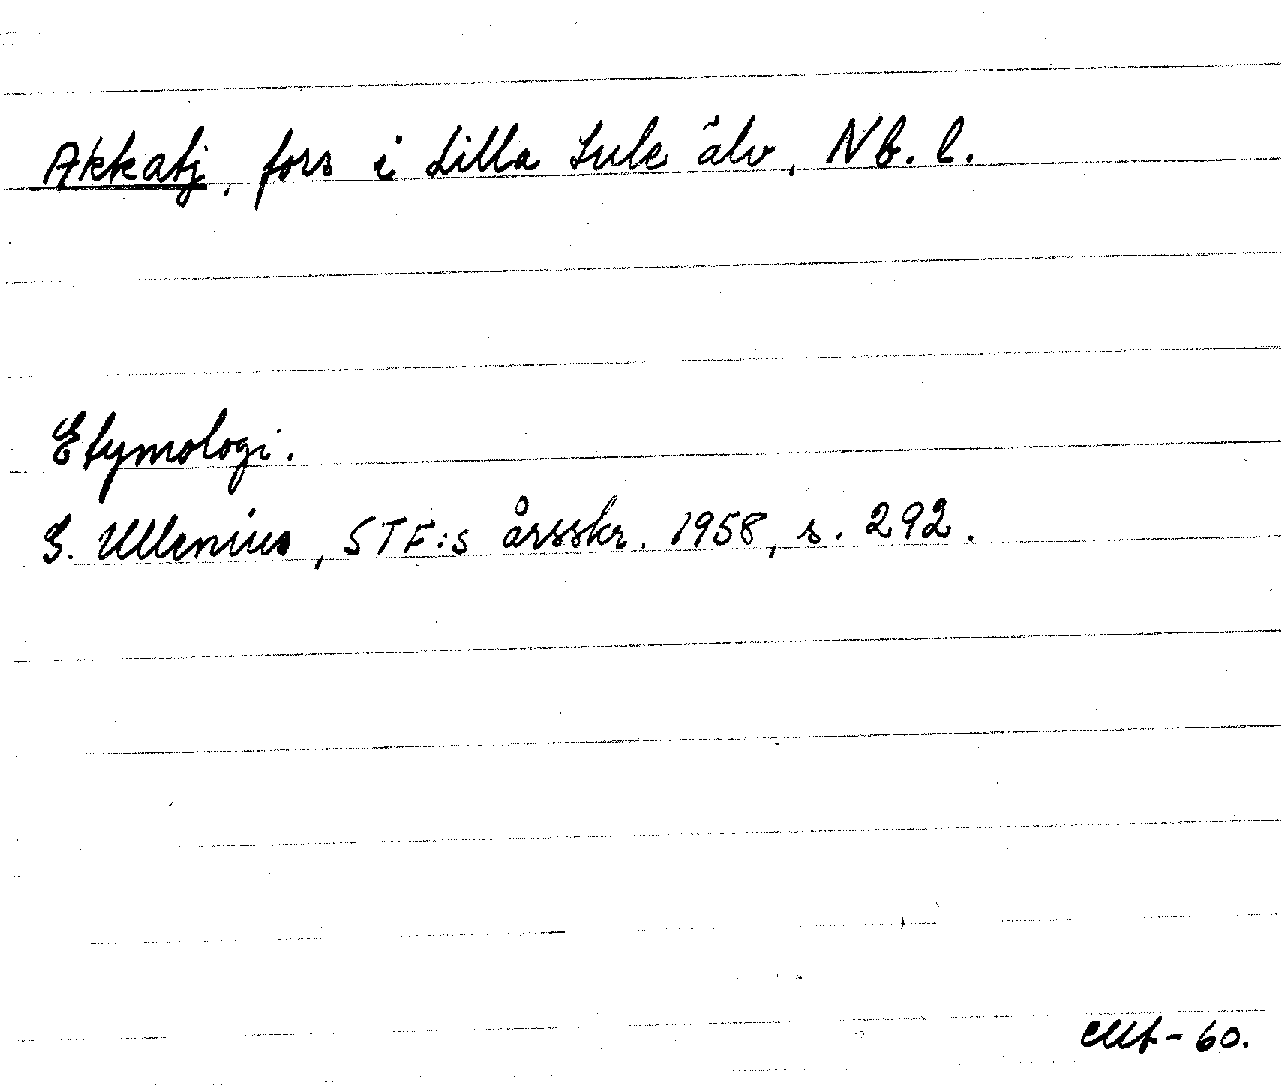 Akkatj, fors i Lilla Lule älv, Nb. l.
Etymologi.
G. Ullenius, STF:s årsskr. 1958, s. 292.
-60.